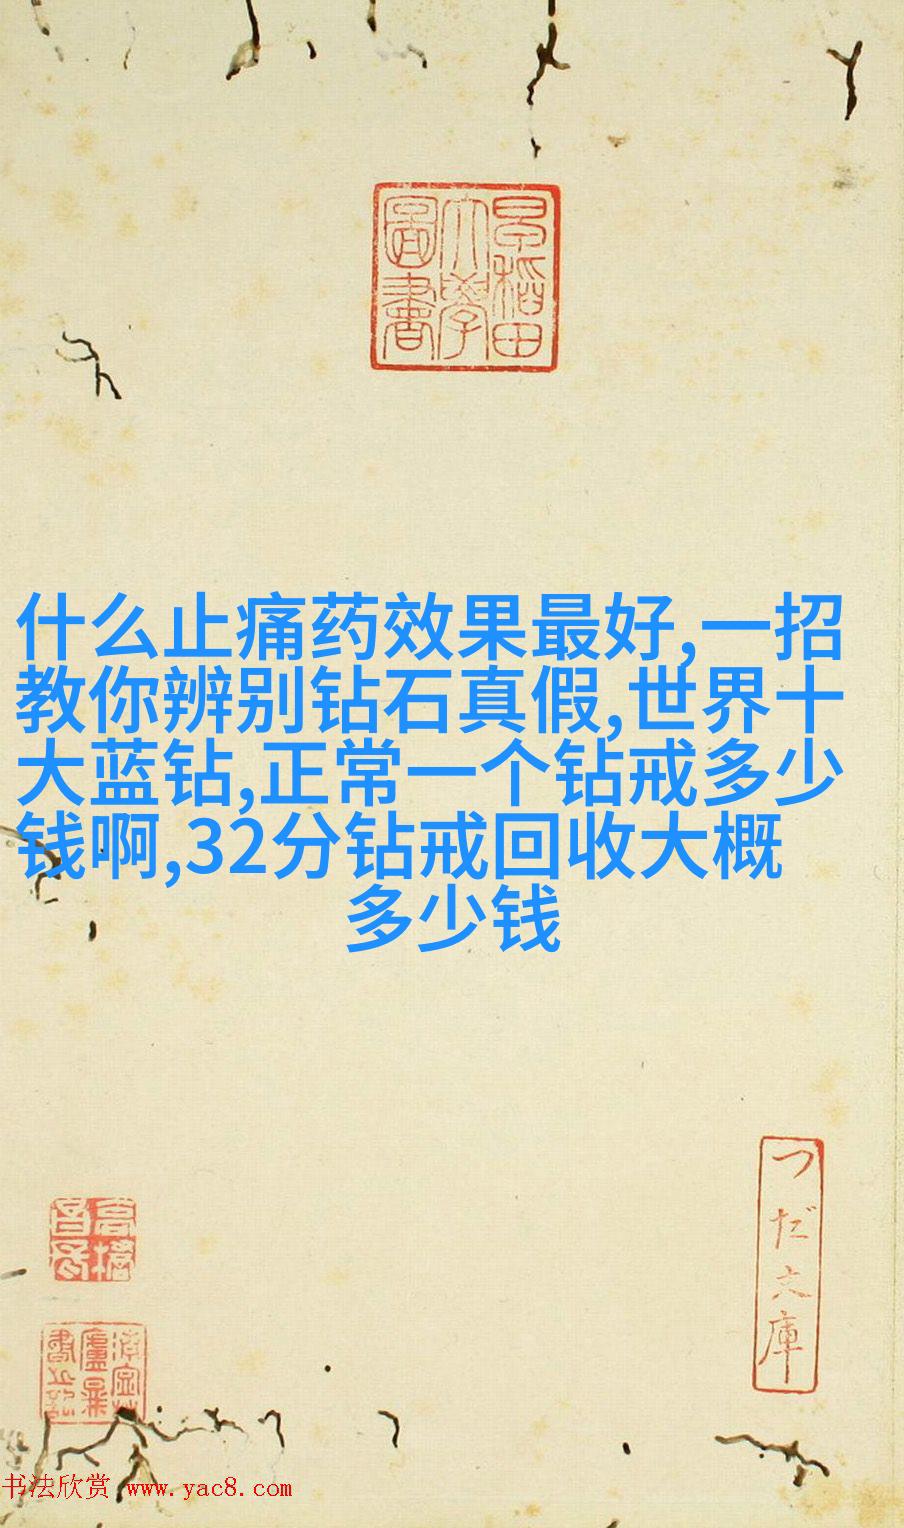 早稲田
大學
圖書
什么止痛药效果最好,一招
教你辨别钻石真假,世界十
大蓝钻,正常一个钻戒多少
钱啊,32分钻戒回收大概
多少钱
つだ文庫
书法欣赏 www.yac8.com